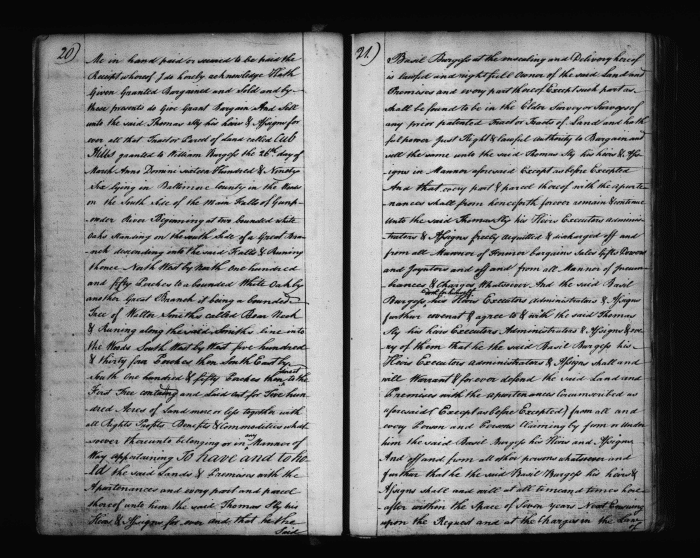 20)
Me in hand paid or secured to be paid the
Receipt whereof I do hereby acknowledge Hath
Given Granted Bargained and Sold and by
these presents do Give Grant Bargain And Sell
unto the said Thomas Sly his heirs & Assigns for
ever all that Tract or Parcel of Land called Cub
Hills granted to William Burgess the 26th day of
March Anno Domini sixteen Hundred & Ninety
Six lying in Baltimore County in the Woods
on the South Side of the Main Falls of Gunp-
owder River Beginning at two bounded white
Oaks standing on the south Side of a Great Bra-
nch descending into the said Falls & Runing
thence North West by North One hundred
and fifty Perches to a bounded White Oak by
another Great Branch it being a bounded
Tree of Walter Smiths called Bear Neck
& Runing along the said Smiths line into
the Woods South West by West five hundred
& thirty four Perches then South East by
South One hundred & fifty Perches then to the
First Tree containg and Laid out for Five hun-
dred Acres of Land more or less together with
all Rights Profits Benefits & Commodities what
soever thereunto belonging or in any Manner of
Way appertaining To have and to ho
ld the said Lands & Premises with the
Apurtenances and every part and parcel
thereof unto him the said Thomas Sly his
Heirs & Assigns for ever and that he the
Said
21)
Basil Burgess at the ensealing and Delivery hereof
is lawful and rightfull Owner of the said Land and
Premises and every part thereof Except such part as
shall be found to be in the Elder Survey or Surveys of
any prior patented Tract or Tracts of Land and hath
full power Just Right & lawfull Authority to Bargain and
sell the same unto the said Thomas Sly his heirs & Ass-
igns in Manner aforesaid Except as before Excepted
And that every part & parcel thereof with the apurte-
nances shall from henceforth forever remain & continue
Unto the said Thomas Sly his Heirs Executors Adminis-
trators & Assigns freely Acquitted & discharged off and
from all Mannor of Former bargains Sales Gifts Dowers
and Joyntors and off and from all Mannor of Incum-
brances & Charges Whatsoever And the said Basil
Burgess his Heirs Executors Administrators & Assigns
further covenant & agree to & with the said Thomas
Sly his heirs Executors Administrators & Assigns & eve
ry of them that he the said Basil Burgess his
Heirs Executors administrators & Assigns shall and
will Warrant & forever defend the said Land and
Premises with the apurtenances Circumscribed as
aforesaid (Except as before Excepted) from all and
every Person and Persons Claiming by from or Under
him the said Basil Burgess his Heirs and Assigns
And off and from all other persons whatsoever and
further that he the said Basil Burgess his heirs &
Assigns shall and will at all times and times here-
after within the Space of Seven Years Next Ensuing
upon the Request and at the Charges in the Law
of